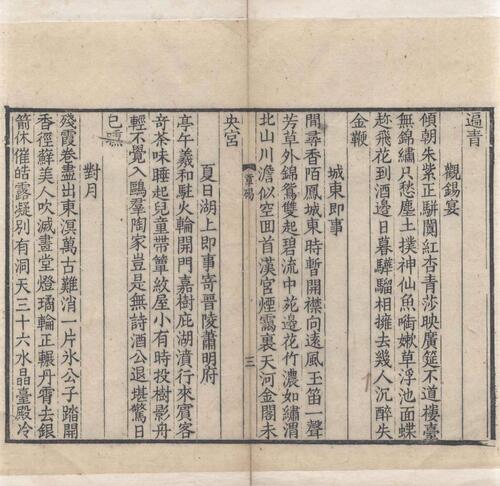 逼青
觀錫宴
傾朝朱紫正駢闐紅杏青莎映廣筵不道樓臺
無錦繡只愁塵土撲神仙魚㘅嫩草浮池面蝶
趂飛花到酒邊日暮驊騮相擁去幾人沉醉失
金鞭
城東即事
閒尋香陌鳳城東時暫開襟向遠風玉笛一聲
芳草外錦鴛雙起碧流中苑邊花竹濃如繡渭
北山川澹似空回首漢宮煙靄裏天河金閣未
央宮
章碣
三
夏日湖上即事寄晋陵蕭明府
亭午羲和駐火輪開門嘉樹庇湖濆行來賓客
奇茶味睡起兒童帶簟紋屋小有時投樹影舟
輕不覺入鷗羣陶家豈是無詩酒公退堪驚日
已曛
對月
殘霞卷盡出東溟萬古難消一片氷公子踏開
香徑蘚美人吹滅畫堂燈瑤輪正輾丹霄去銀
箭休催皓露凝別有洞天三十六水晶臺殿冷